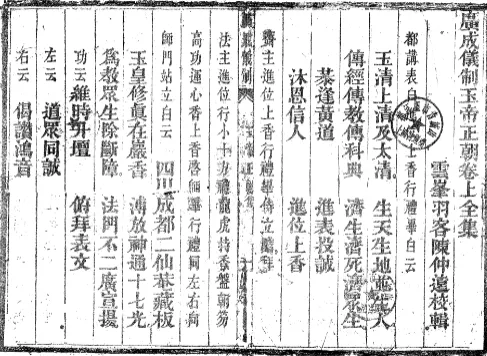 廣成儀制玉帝正朝卷上全集
雲峯羽客陳仲遠校輯
都講表白 上香行禮畢白云
玉清上清及太清 生天生地 生人
傳經傳教傳科典 濟生濟死濟眾生
恭逢黄道 進表投誠
沐恩信人 進位上香
齋主進位上香行禮畢侍立
法主進位行小十方禮龍虎持香盤朝笏
高功運心香上香啓師畢行禮何左右向
師門站立白云 四川成都二仙菴藏板
玉皇修真在巖香 溥放神通十七光
為教眾生除斷障 法門不二廣宣揚
功云 維時昇壇 俯拜表文
左云 道眾同誠
右云 偈讚鴻音